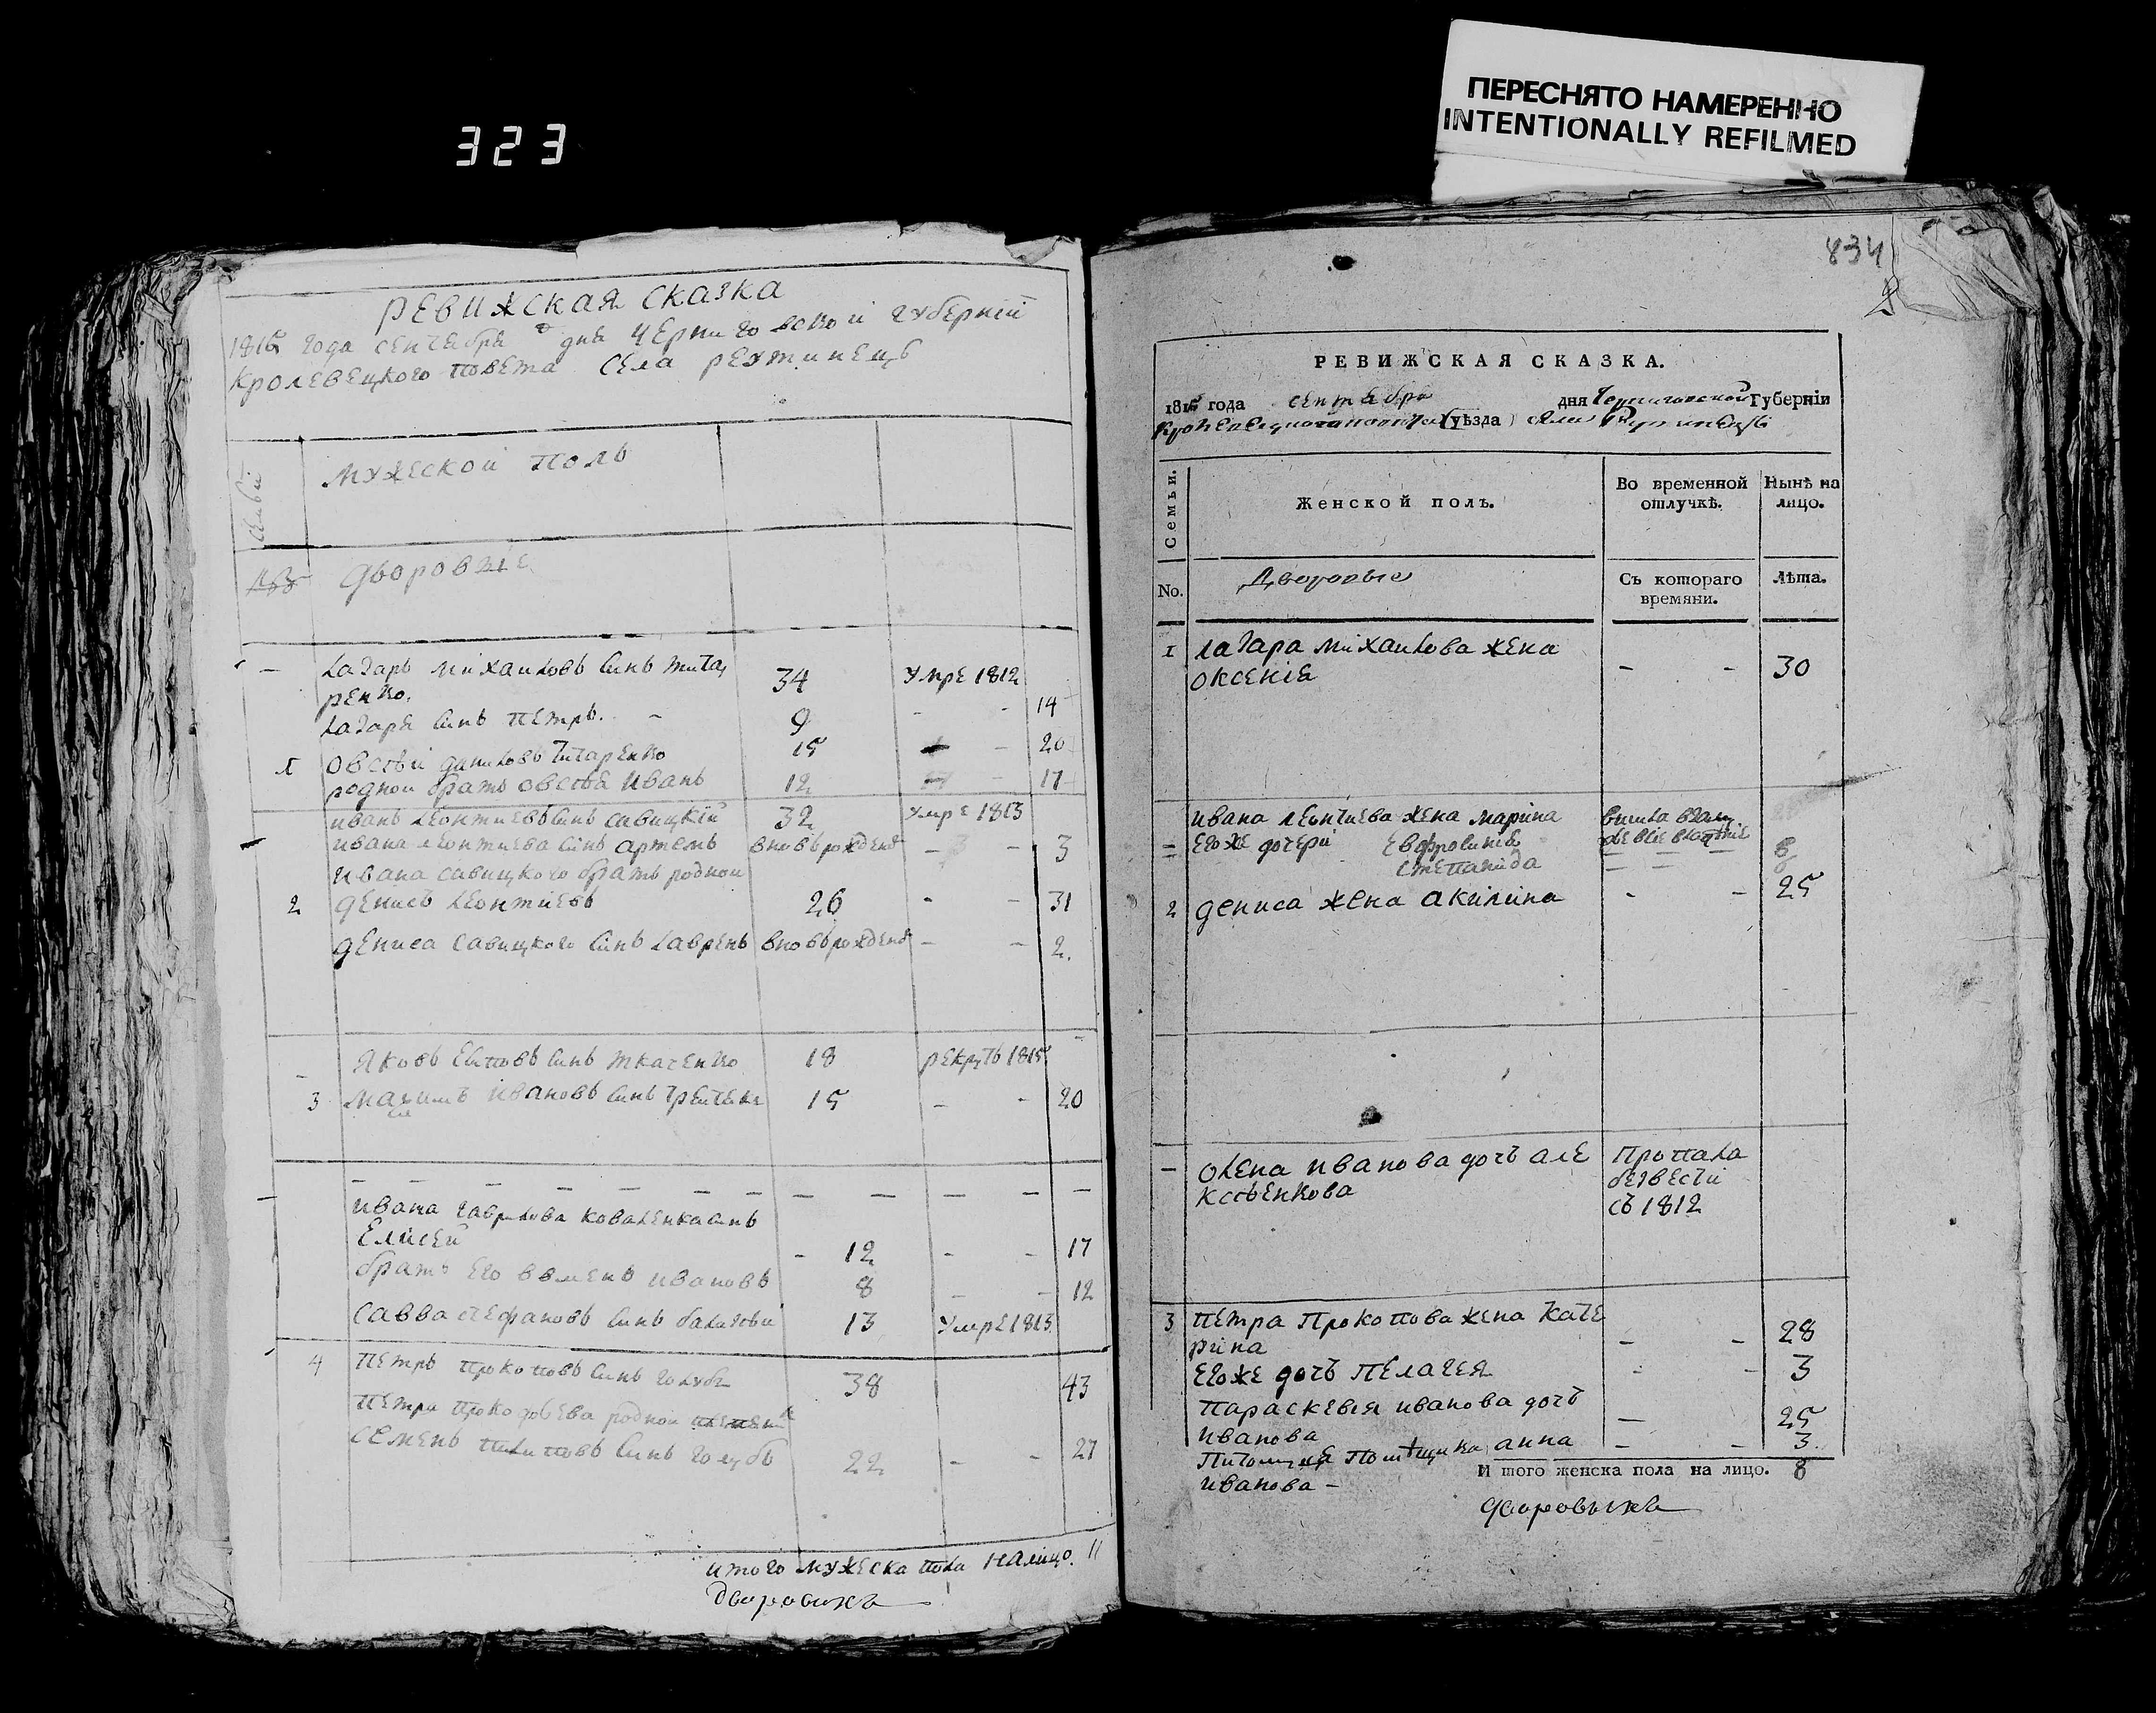 323
ПЕРЕСНЯТО НАМЕРЕННО
INTENTIONALLY REFILMED
РЕВИЖСКАЯ СКАЗКА
1815 года сентебря дня черниговской губерній
кролевецкого повета села реутинецъ
мужеской полъ
дворовіе
Лазарь михаиловъ синъ титаренко. 34 умре 1812
Лазаря синъ петръ. - 9 - - 14
1 овсѣй даниловъ титаренко 15 - 20
родной братъ овсѣя иванъ 12 - 17
иванъ леонтиевъ синъ савицкій 32 умре 1813
ивана леонтиева синъ артемъ вновь рожденъ - - 3
ивана савицкого братъ родной
2 денисъ леонтіевъ 26 - - 31
дениса савицкого синъ лавренъ вновь рожденъ - - 2.
яковъ синъ ткаченко 18 рекрутъ 1815
3 ивановъ синъ 15 - - 20
ивана гаврилова коваленка синъ
Елисей - 12 - - 17
братъ его ивановъ 8 - - 12
Савва стефановъ синъ 13 умре 1813
4 петръ прокоповъ синъ голубъ 38 43
петра родной
семенъ пилиповъ синъ голубъ 22 - - 27
итого мужеска пола налицо. 11
дворовихъ
834
РЕВИЖСКАЯ СКАЗКА.
1815 года сентебря дня Черниговской Губерніи
уѣзда села
Семьи.
Женской полъ.
Во временной отлучкѣ.
Нынѣ на лицо.
No.
Дворовые
Съ котораго времяни.
Лѣта.
1 лазара михаилова жена
оксенія - - 30
ивана леонтиева жена марина вишла
его же дочери Евфросинія
степанида
2 дениса жена акилина - - 25
- олена иванова дочъ але
ксѣенкова
пропала
безвести
съ 1812
3 петра прокопова жена кате
рина - - 28
егоже дочъ пелагея - - 3
параскевія иванова дочъ
иванова - 25
анна - - 3.
иванова -
И того женска пола на лицо. 8
дворовыхъ